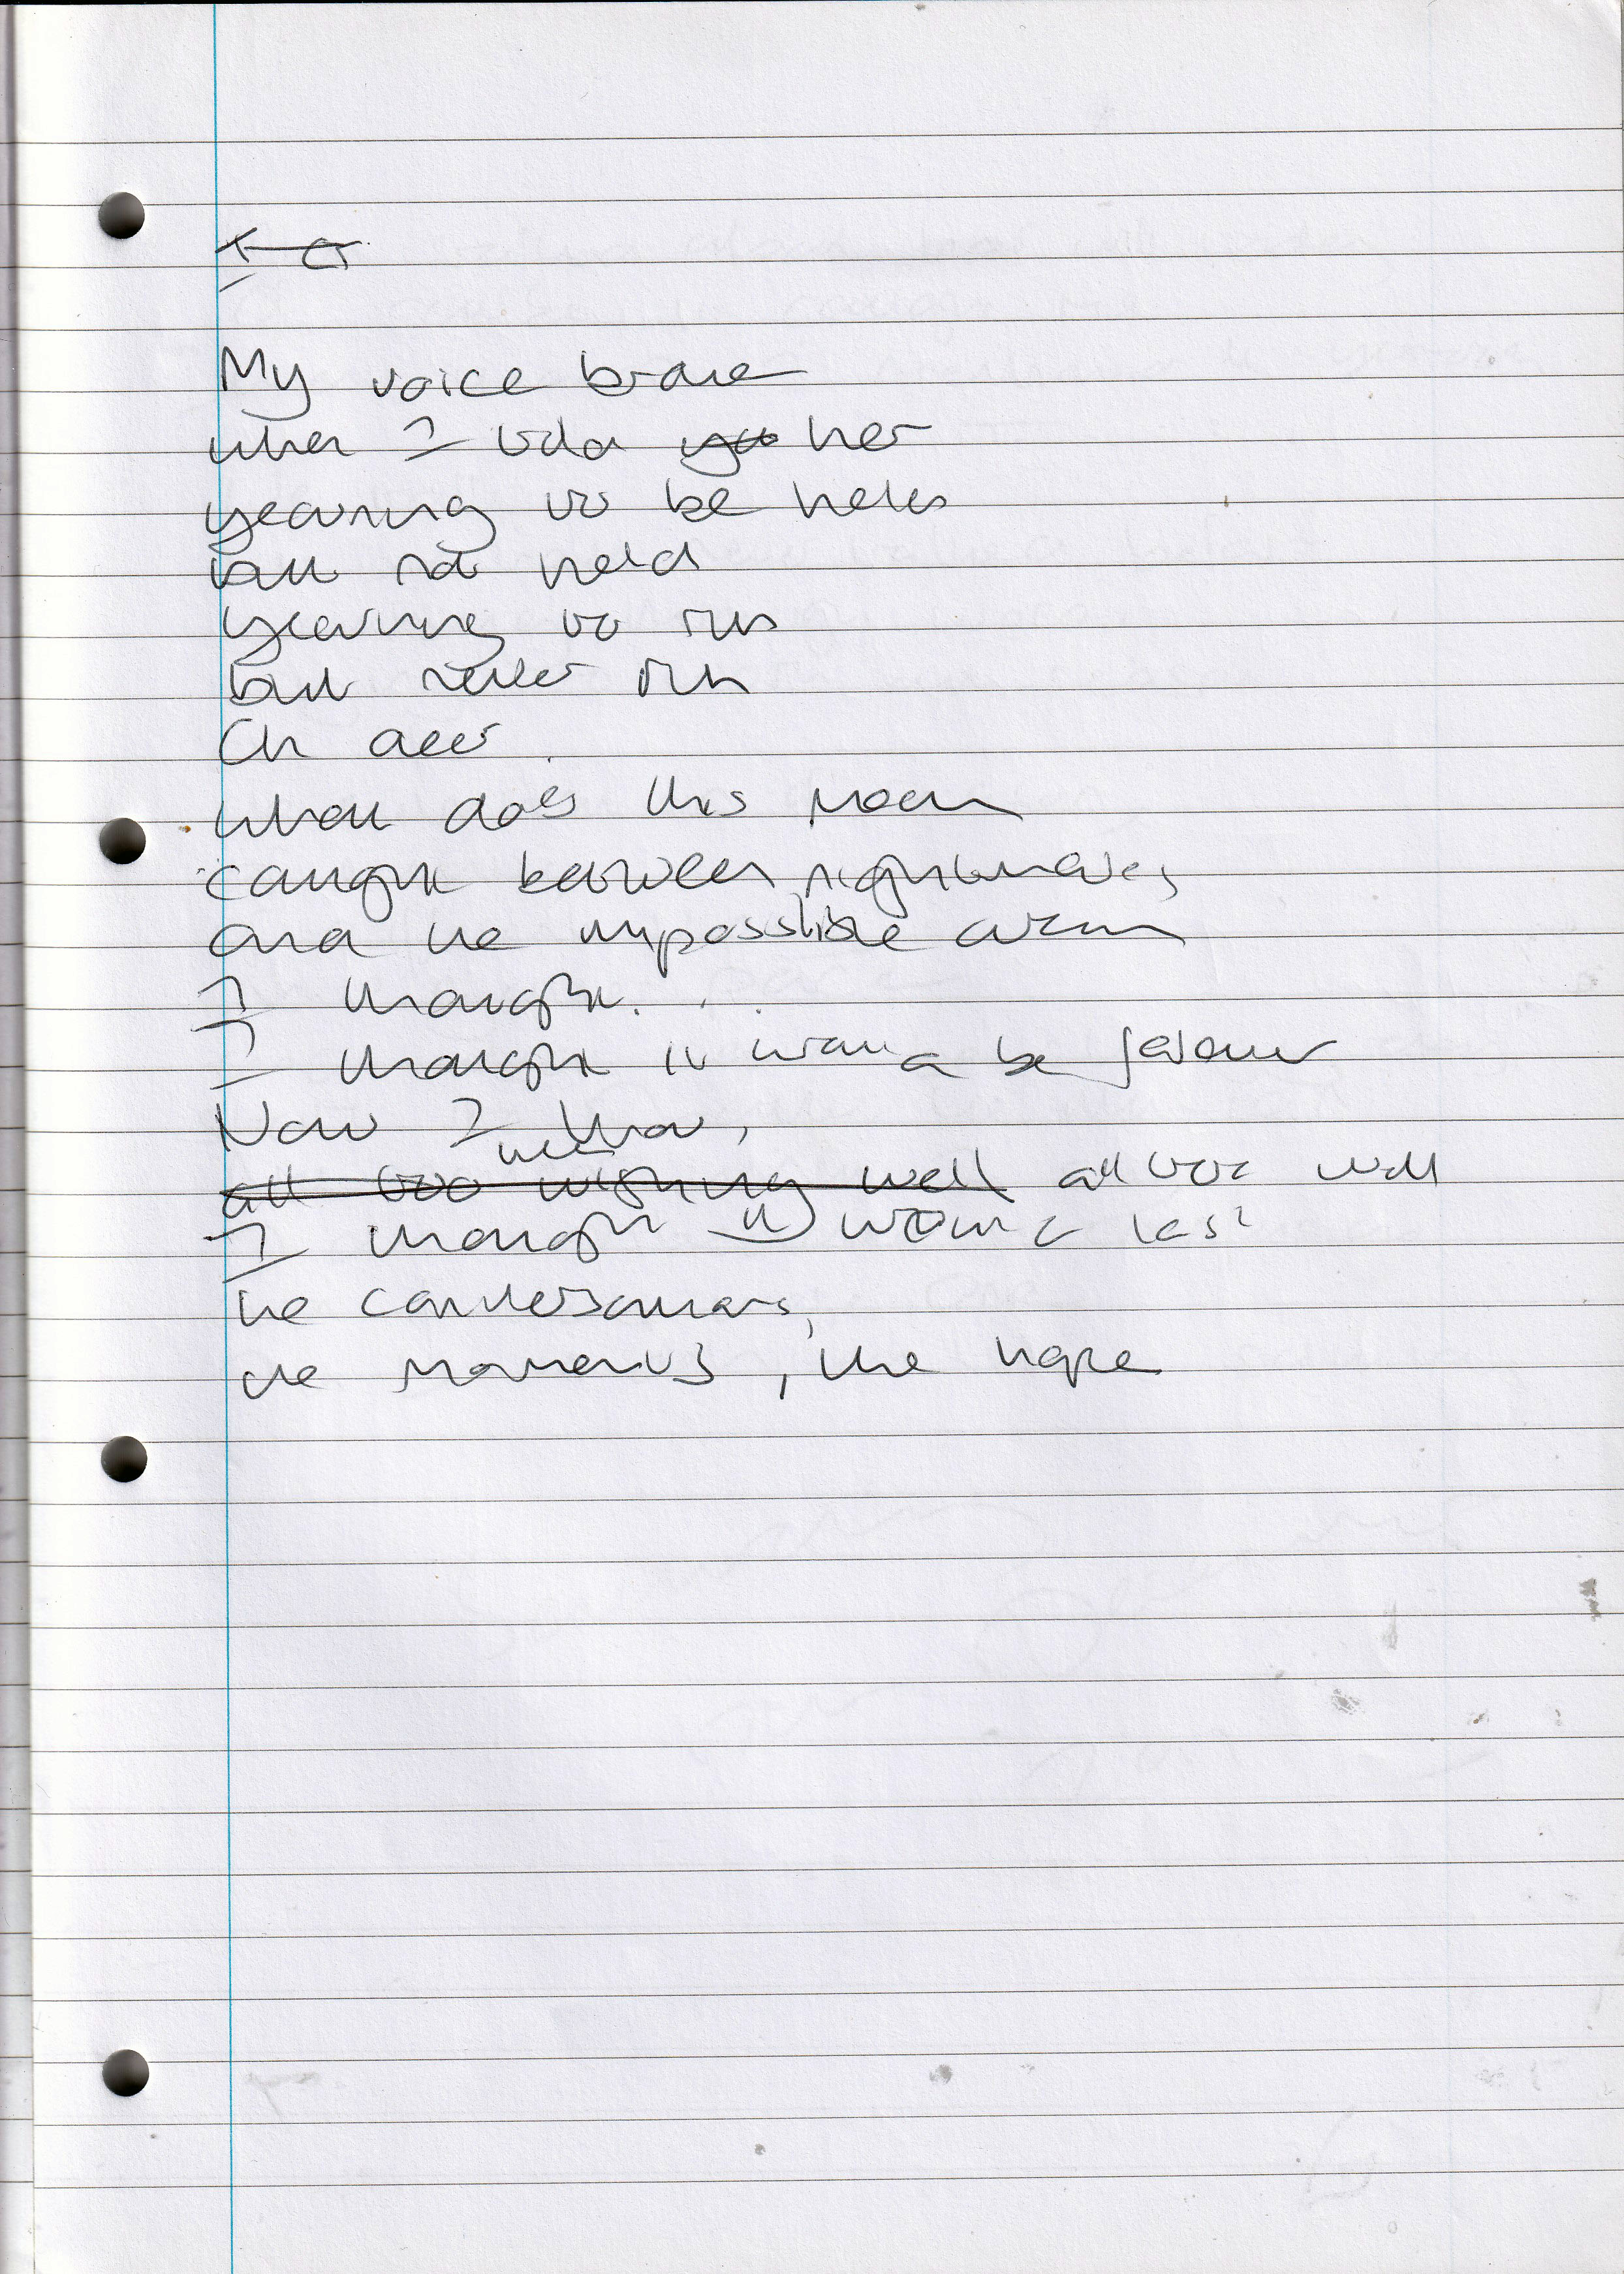 My voice broke
when I told her
yearning to be held
but not held
yearning to run
but never run
Oh dear
what does this mean
caught between nightmares
and the impossible dream
I thought...
I thought it would be forever
Now I know,
all too well
I thought it would last
the conversations,
the moments, the hope